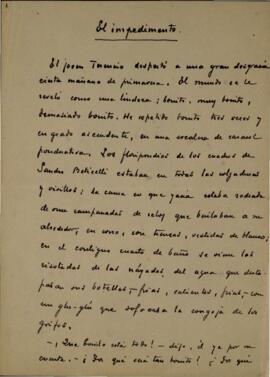 El impedimento.
El joven Terencio despertó a una gran desgracia
cierta mañana de primavera. El mundo se le
reveló como una lindeza; bonito, muy bonito,
demasiado bonito. He repetido bonito tres veces y
en grado ascendente, en una escalera de caracol
ponderativa. Los floripondios de los cuadros de
Sandro Boticelli estaban en todas las colgaduras
y visillos; la cama en que yacía estaba rodeada
de unas campanadas de reloj que bailaban a su
alrededor, en corro, con túnicas, vestidas de blanco;
en el contiguo cuarto de baño se oían las
risotadas de las náyades, del agua que desta-
paban sus botellas, frías, calientes, frías, con
un glu-glú que sofocaba la congoja de los
grifos.
—¡Qué bonito está todo! — dijo, él ya por su
cuenta. — ¿Por qué será tan bonito? ¿Por qué